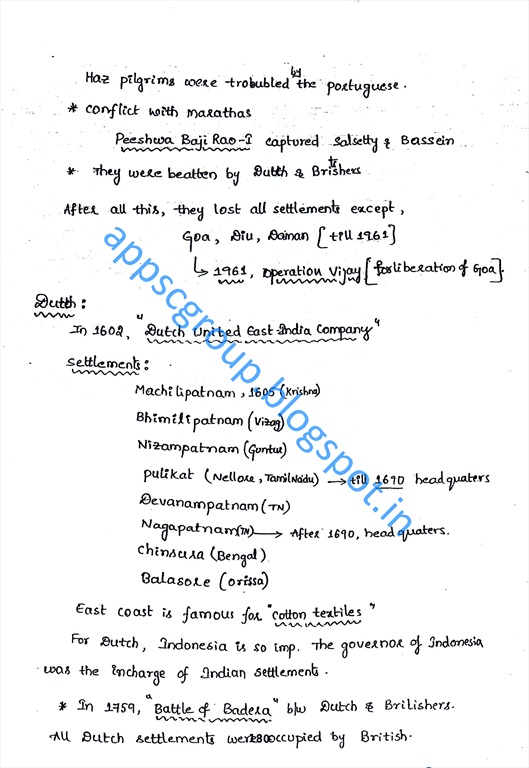 by
Haz pilgrims were trobubled the portuguese.
* conflict with marathas
Peeshwa Baji Rao-I captured Salsetty & Bassein
* They were beatten by Dutch & Brishers
After all this, they lost all settlements except,
Goa, Diu, Daman [till 1961]
↳ 1961, operation Vijay [for liberation of Goa].
Dutch:
In 1602, "Dutch United East India Company"
Settlements:
Machilipatnam, 1605 (Krishna)
Bhimilipatnam (Vizag)
Nizampatnam (Guntur)
pulikat (Nellore, Tamil Nadu) → till 1690 headquaters
Devanampatnam (TN)
Nagapatnam (TN) → After 1690, headquaters.
Chinsura (Bengal)
Balasore (Orissa)
East coast is famous for "cotton textiles"
For Dutch, Indonesia is so imp. The governor of Indonesia
was the incharge of Indian settlements.
* In 1759, "Battle of Badera" b/w Dutch & Brilishers.
All Dutch settlements were occupied by British.
appscgroup.blogspot.in